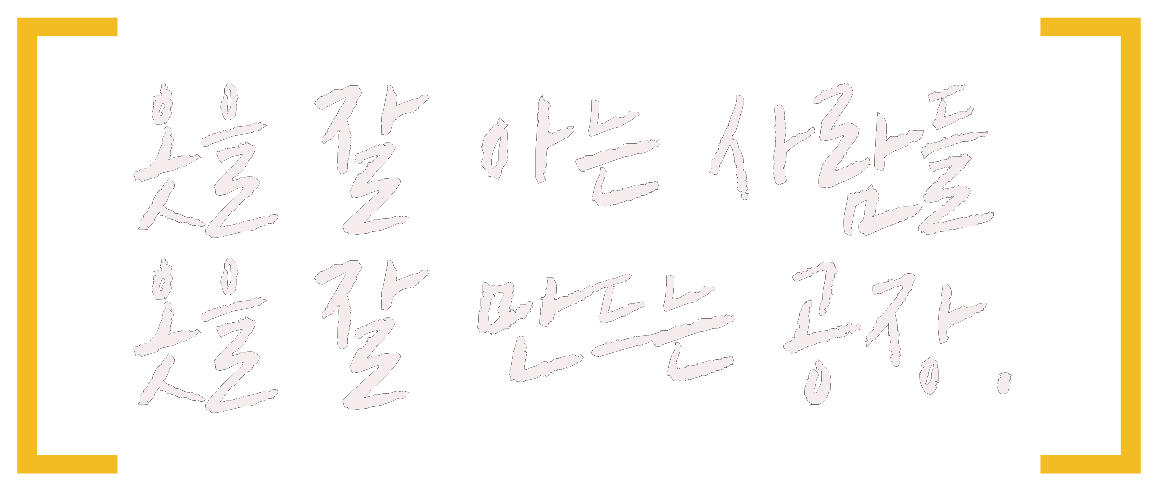 옷을 잘 아는 사람들
옷을 잘 만드는 공장.